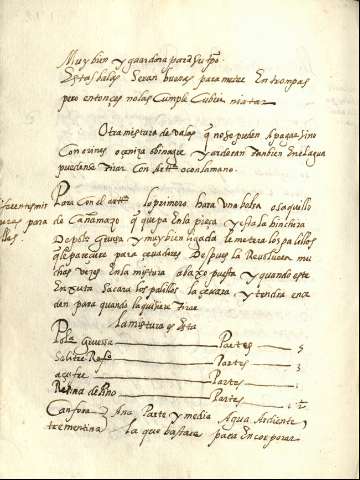 Muy bien y guardara para Su tpo
Estas balas Seran buenas para meter En trompas
pero entonçes no las Cumple Cubrir ni atar
Otra mistura de valas q no se pueden Apagar sino
Con orines o ceniza o binagre y arderan tanbien En el agua
puedense tirar Con Artª o con la mano.
Para Con el artª lo primero hara Una bolsa o saquillo
de Cañamazo q quepa En la pieça y esta la hinchira
De polª Gruesa y muy bien ligada le metera los palillos
q le pareciere para çevadores Despues la Revolvera mu
chas vezes En la mistura abaxo puesta y quando este
Enxuta Sacara los palillos la çevara y tendra ence
den para quando la quisiere tirar
La mistura es Esta
Polª Gruessa Partes 5
Salitre Refº Partes 3
açufre Partes
Resina de Pino Partes 1 ½
Canfora Ana Parte y media Agua Ardiente
trementina la que bastare para Encorporar